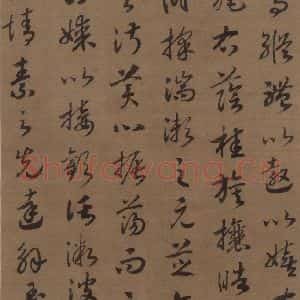 焉縱體以遨以嬉
旄右蔭桂旗攘皓
採湍瀨之玄芝
淑美心振蕩而
媒以接歡託微波
情素之先達解玉
Shufawang.cn